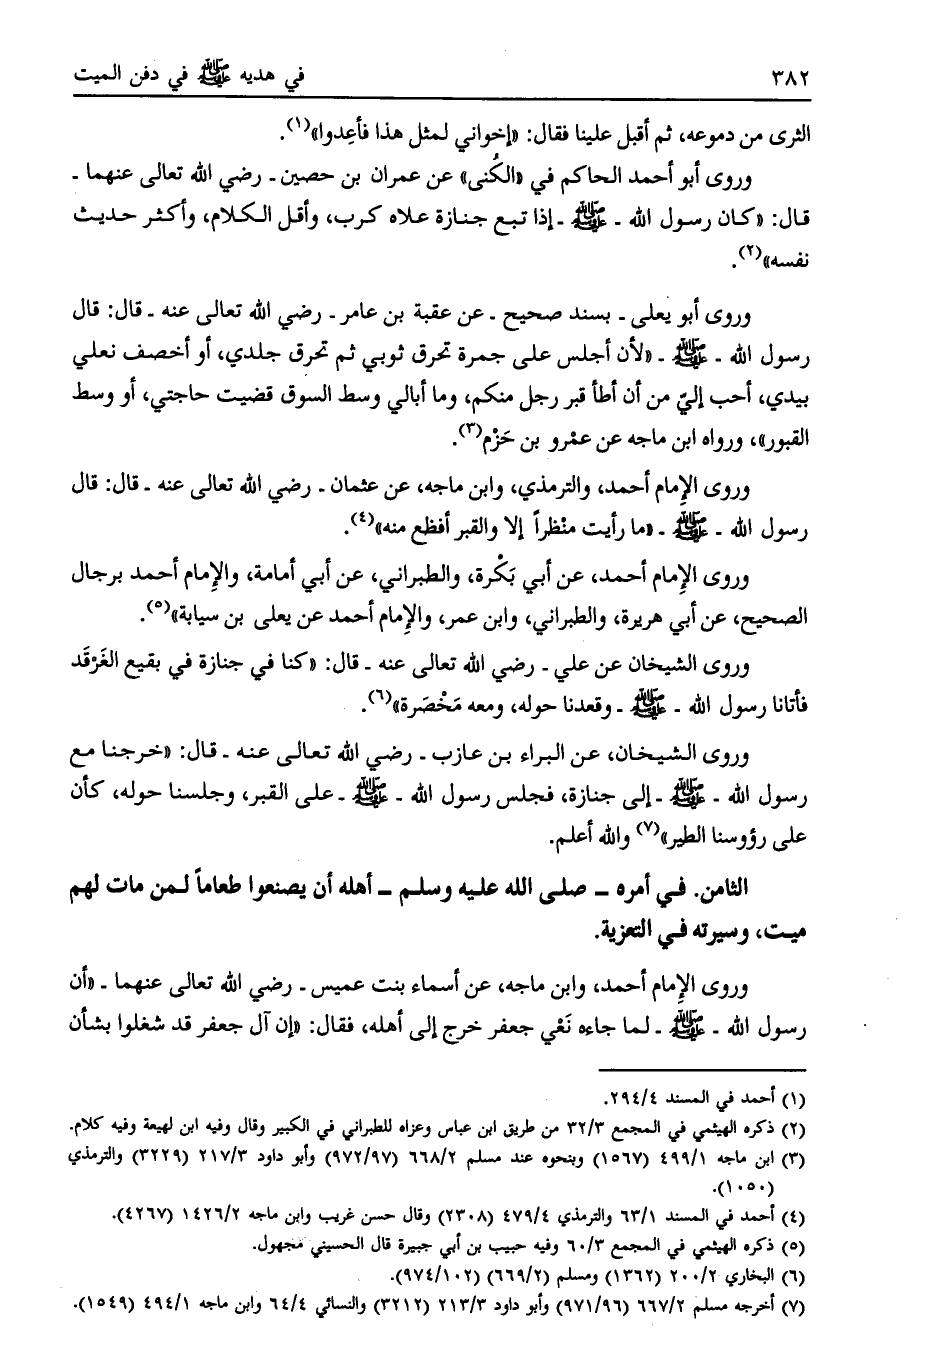 ٣٨٢ في هديه ﷺ في دفن الميت
الثرى من دموعه، ثم أقبل علينا فقال: «إخواني لمثل هذا فأعِدوا»(١).
وروى أبو أحمد الحاكم في «الكُنى» عن عمران بن حصين ـ رضي الله تعالى عنهما ـ
قال: «كان رسول الله ـ ﷺ ـ إذا تبع جنازة علاه كرب، وأقل الكلام، وأكثر حديث
نفسه»(٢).
وروى أبو يعلى ـ بسند صحيح ـ عن عقبة بن عامر ـ رضي الله تعالى عنه ـ قال: قال
رسول الله ـ ﷺ ـ «لأن أجلس على جمرة تحرق ثوبي ثم تحرق جلدي، أو أخصف نعلي
بيدي، أحب إليّ من أن أطأ قبر رجل منكم، وما أبالي وسط السوق قضيت حاجتي، أو وسط
القبور»، ورواه ابن ماجه عن عمْرو بن حَزْم(٣).
وروى الإمام أحمد، والترمذي، وابن ماجه، عن عثمان ـ رضي الله تعالى عنه ـ قال: قال
رسول الله ـ ﷺ ـ «ما رأيت منْظراً إلا والقبر أفظع منه»(٤).
وروى الإمام أحمد، عن أبي بَكْرة، والطبراني، عن أبي أمامة، والإمام أحمد برجال
الصحيح، عن أبي هريرة، والطبراني، وابن عمر، والإمام أحمد عن يعلى بن سيابة»(٥).
وروى الشيخان عن علي ـ رضي الله تعالى عنه ـ قال: «كنا في جنازة في بقيع الغَرْقَد
فأتانا رسول الله ـ ﷺ ـ وقعدنا حوله، ومعه مَخْصَرة»(٦).
وروى الشيخان، عن البراء بن عازب ـ رضي الله تعالى عنه ـ قال: «خرجنا مع
رسول الله ـ ﷺ ـ إلى جنازة، فجلس رسول الله ـ ﷺ ـ على القبر، وجلسنا حوله، كأن
على رؤوسنا الطير»(٧) والله أعلم.
الثامن. في أمره ـ صلى الله عليه وسلم ـ أهله أن يصنعوا طعاماً لمن مات لهم
ميت، وسيرته في التعزية.
وروى الإمام أحمد، وابن ماجه، عن أسماء بنت عميس ـ رضي الله تعالى عنهما ـ «أن
رسول الله ـ ﷺ ـ لما جاءه نَعْي جعفر خرج إلى أهله، فقال: «إن آل جعفر قد شغلوا بشأن
(١) أحمد في المسند ٢٩٤/٤.
(٢) ذكره الهيثمي في المجمع ٣٢/٣ من طريق ابن عباس وعزاه للطبراني في الكبير وقال وفيه ابن لهيعة وفيه كلام.
(٣) ابن ماجه ٤٩٩/١ (١٥٦٧) وبنحوه عند مسلم ٦٦٨/٢ (٩٧٢/٩٧) وأبو داود ٢١٧/٣ (٣٢٢٩) والترمذي
(١٠٥٠).
(٤) أحمد في المسند ٦٣/١ والترمذي ٤٧٩/٤ (٢٣٠٨) وقال حسن غريب وابن ماجه ١٤٢٦/٢ (٤٢٦٧).
(٥) ذكره الهيثمي في المجمع ٦٠/٣ وفيه حبيب بن أبي جبيرة قال الحسيني مجهول.
(٦) البخاري ٢٠٠/٢ (١٣٦٢) ومسلم (٦٦٩/٢) (٩٧٤/١٠٢).
(٧) أخرجه مسلم ٦٦٧/٢ (٩٧١/٩٦) وأبو داود ٢١٣/٣ (٣٢١٢) والنسائي ٦٤/٤ وابن ماجه ٤٩٤/١ (١٥٤٩).